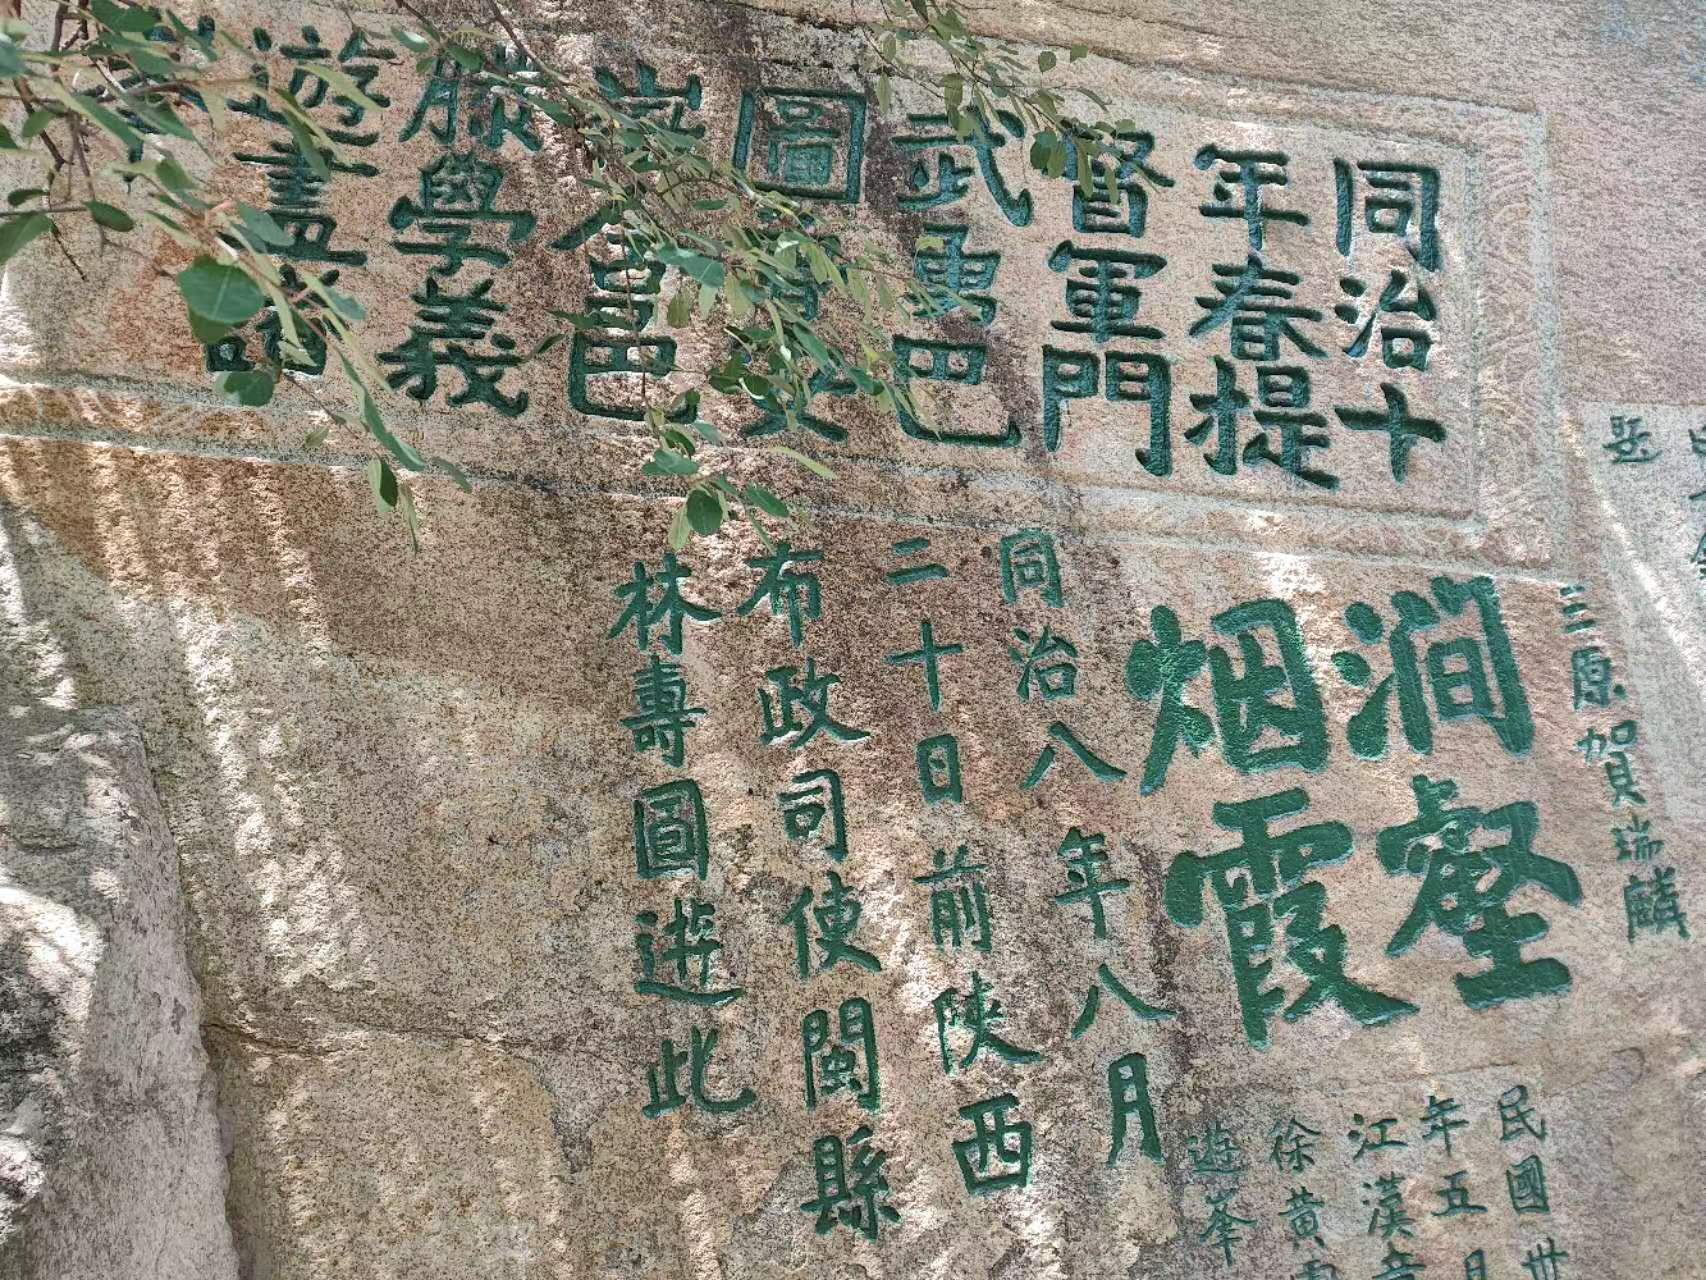 同治十
年春提
督軍門
武勇巴
圖
邑
滕學義
遊盡諸
澗壑
烟霞
三原賀瑞麟
題
同治八年八月
二十日前陝西
布政司使閩縣
林壽圖遊此
民國卅
年五月
江漢
徐黃
遊峯